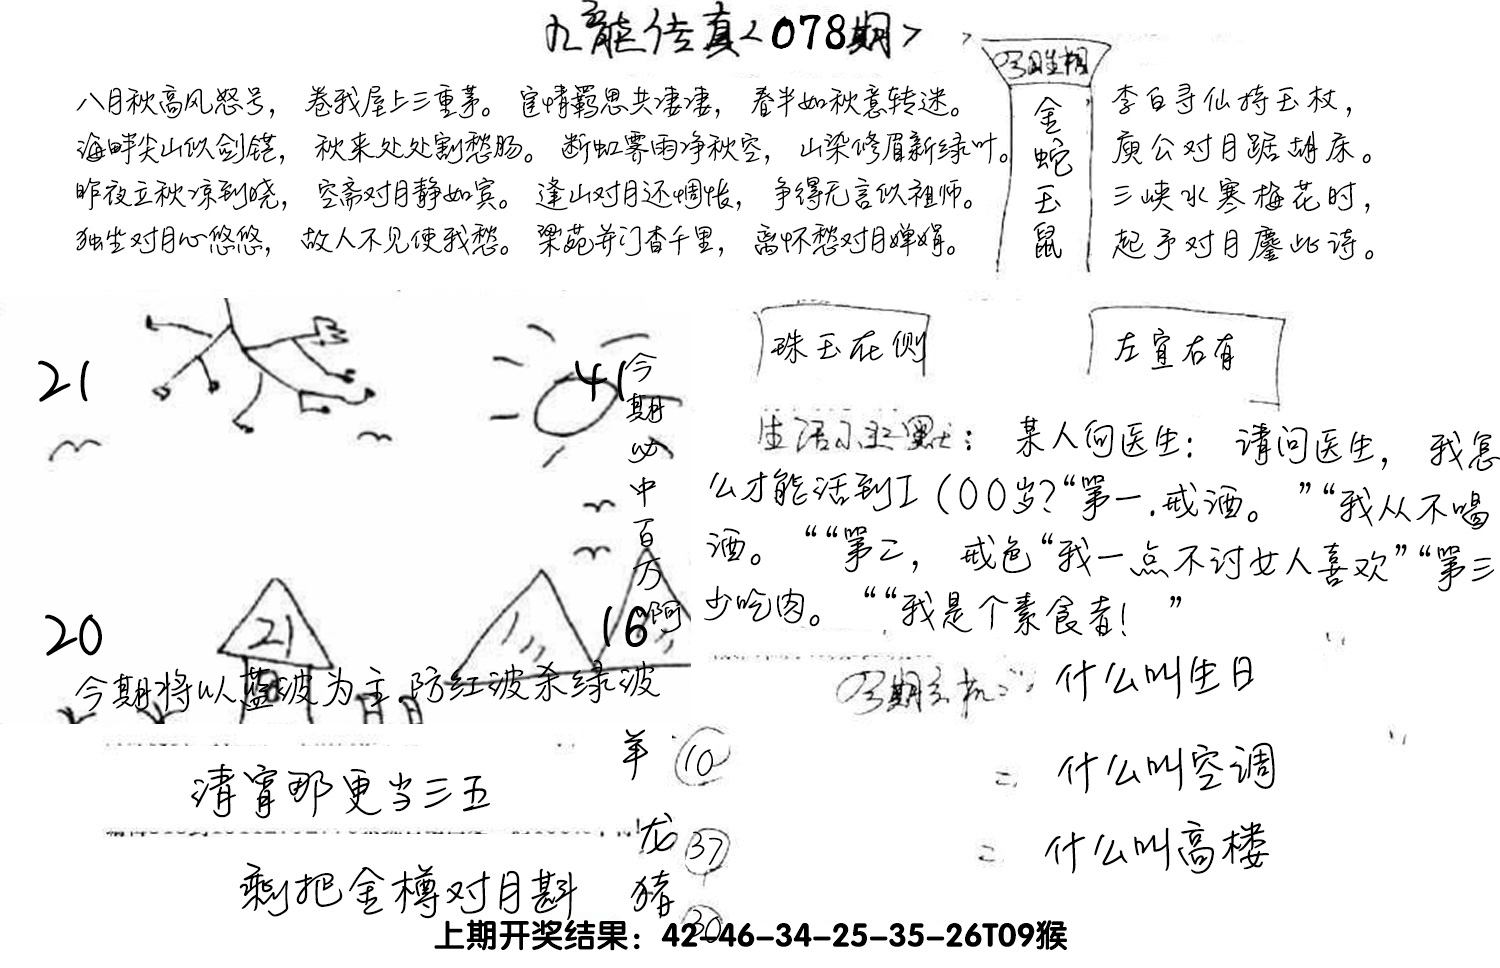 九龙传真<078期>
八月秋高风怒号，卷我屋上三重茅。宦情羁思共凄凄，春半如秋意转迷。
海畔尖山似剑铓，秋来处处割愁肠。断虹霁雨净秋空，山染修眉新绿叶。
昨夜立秋凉到晓，空斋对月静如宾。逢山对月还惆怅，争得无言似祖师。
独坐对月心悠悠，故人不见使我愁。梁苑并门香千里，离怀愁对月婵娟。
今期生相
金蛇玉鼠
李白寻仙持玉杖，
庾公对月踞胡床。
三峡水寒梅花时，
起予对月鏖此诗。
21
41
今期必中百万啊
20
21
16
今期将以蓝波为主.防红波杀绿波
珠玉在侧
左宜右有
生活小幽默：某人问医生：请问医生，我怎
么才能活到I（00岁?“第一.戒酒。”“我从不喝
酒。““第二，戒色“我一点不讨女人喜欢”“第三
少吃肉。““我是个素食者！”
今期玄机：什么叫生日
= 什么叫空调
= 什么叫高楼
清宵那更当三五
剩把金樽对月斟
羊 10
龙 37
猪 30
上期开奖结果：42-46-34-25-35-26T09猴